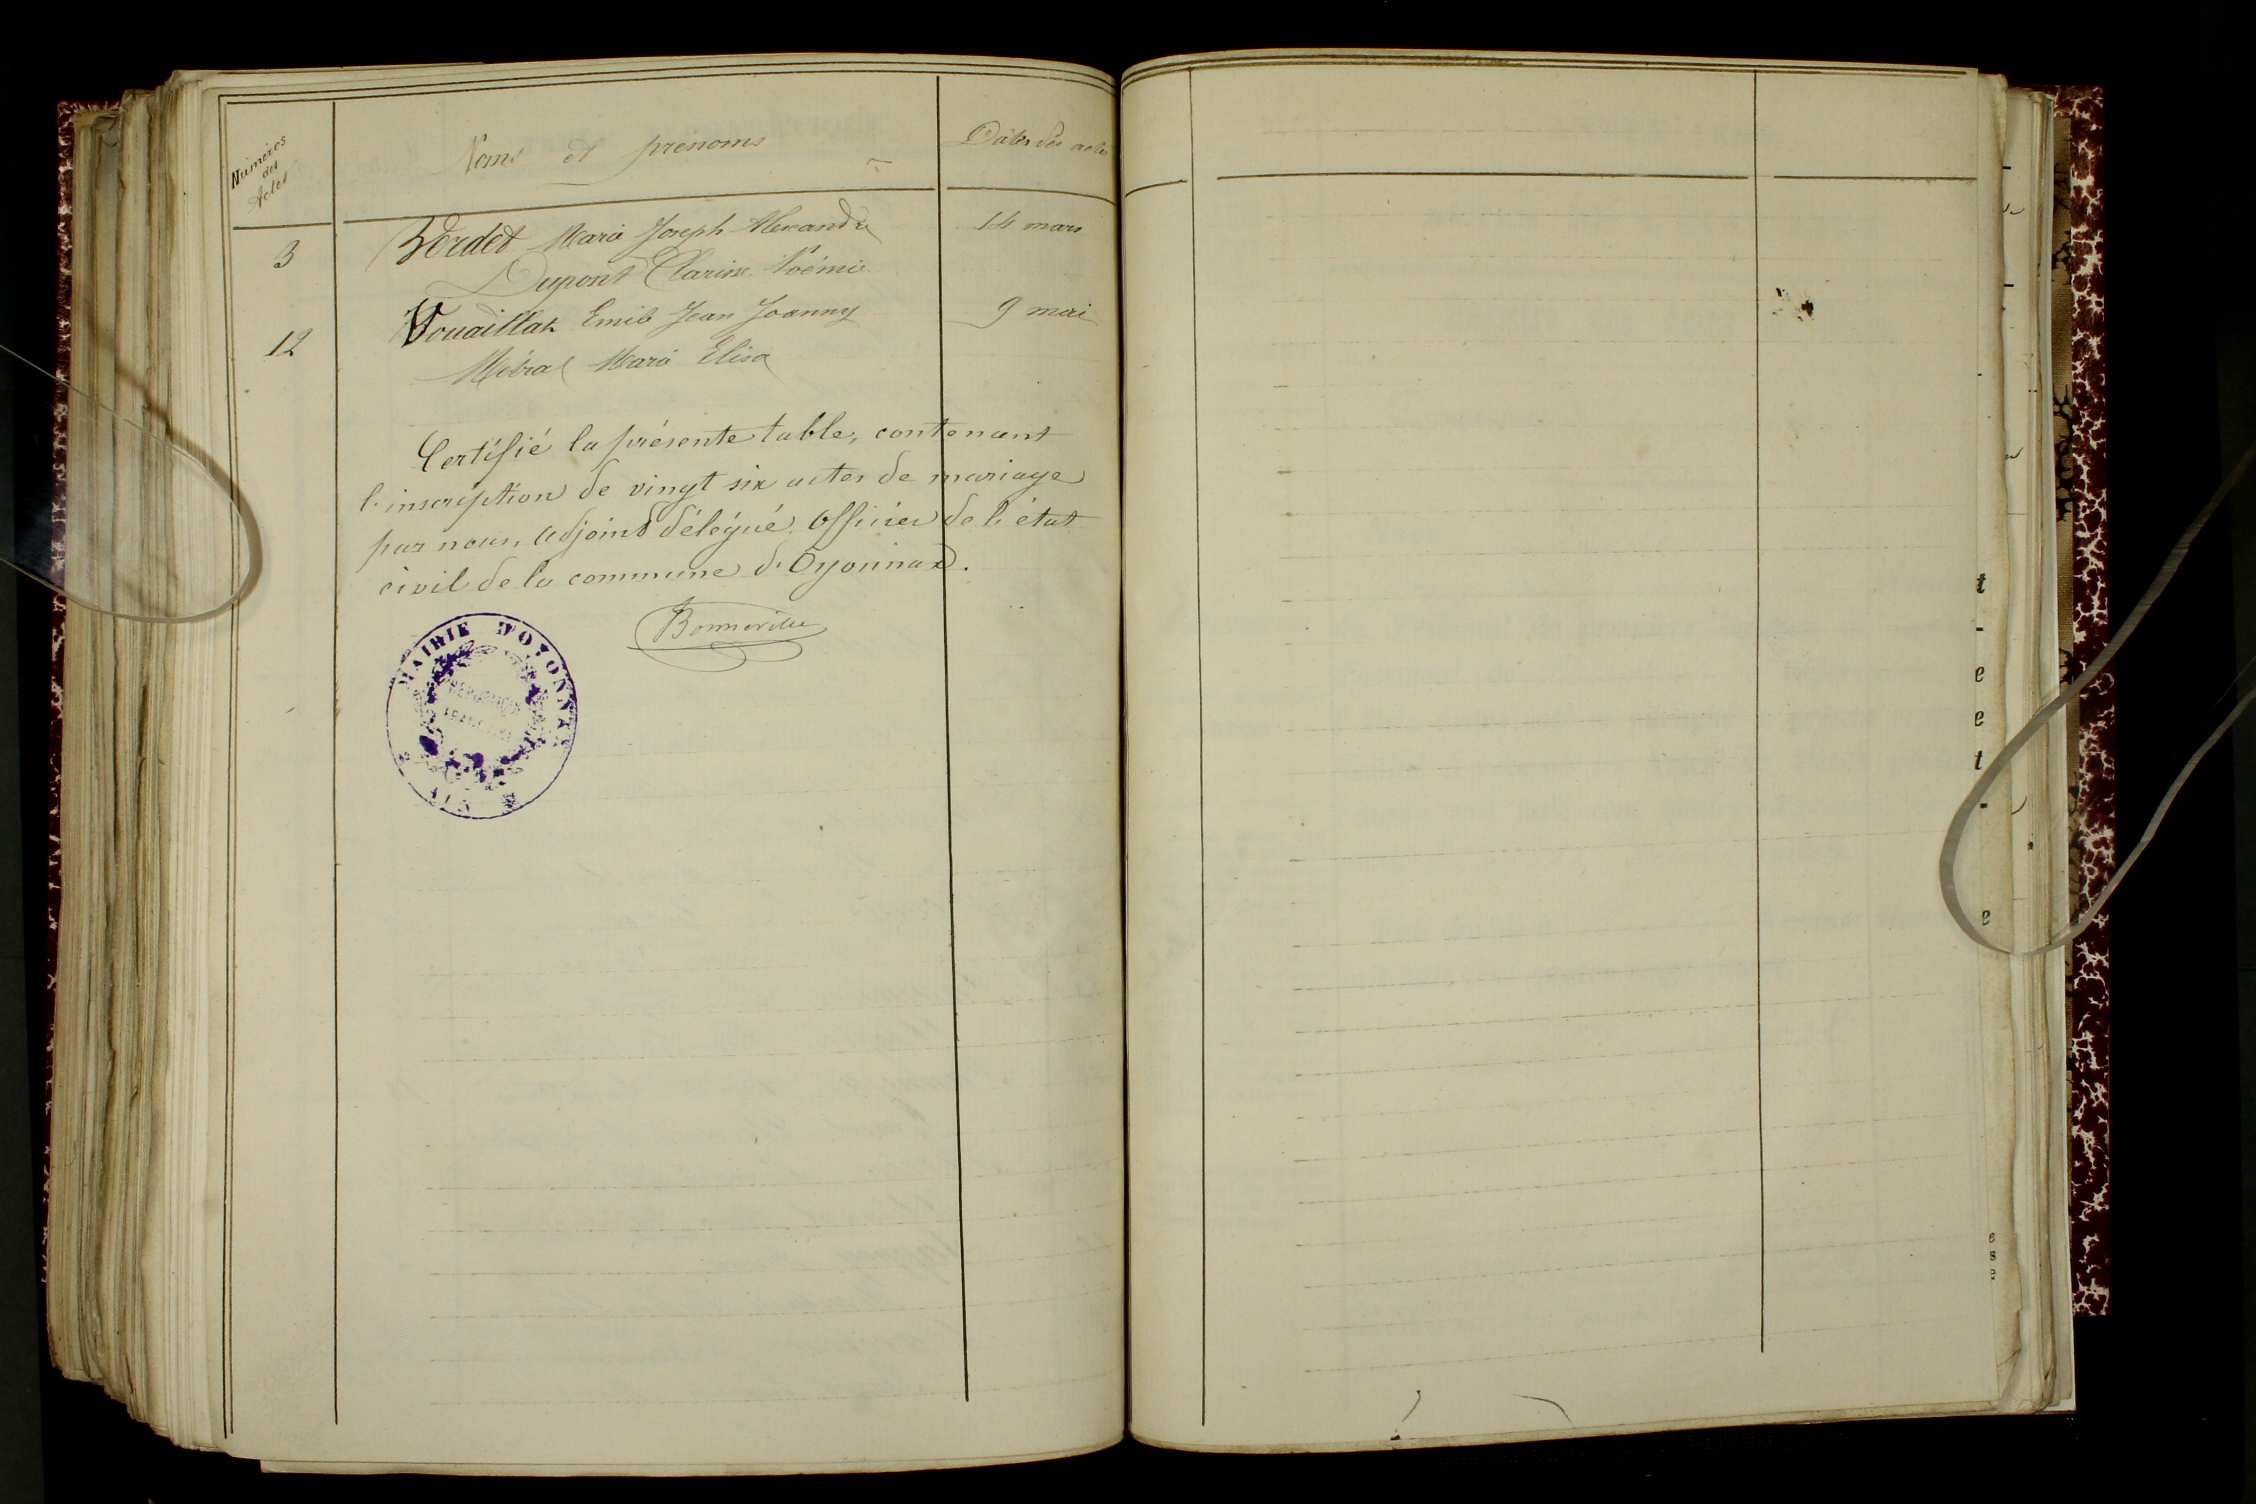 Numéros des Actes
Noms et prénoms
Dates des actes
3 Verdet Marie Joseph Alexandre 14 mars
Dupont Clarisse Noémie
12 Vouaillat Emile Jean Joanny 9 mai
Mébral Marie Elisa
Certifié la présente table, contenant
l'inscription de vingt six actes de mariage
par nous, adjoint délégué officier de l'état
civil de la commune d'Oyonnax.
Bonneville
MAIRIE D'OYONNAX
RÉPUBLIQUE
FRANÇAISE
AIN
t
-
e
e
t
-
e
e
s
e